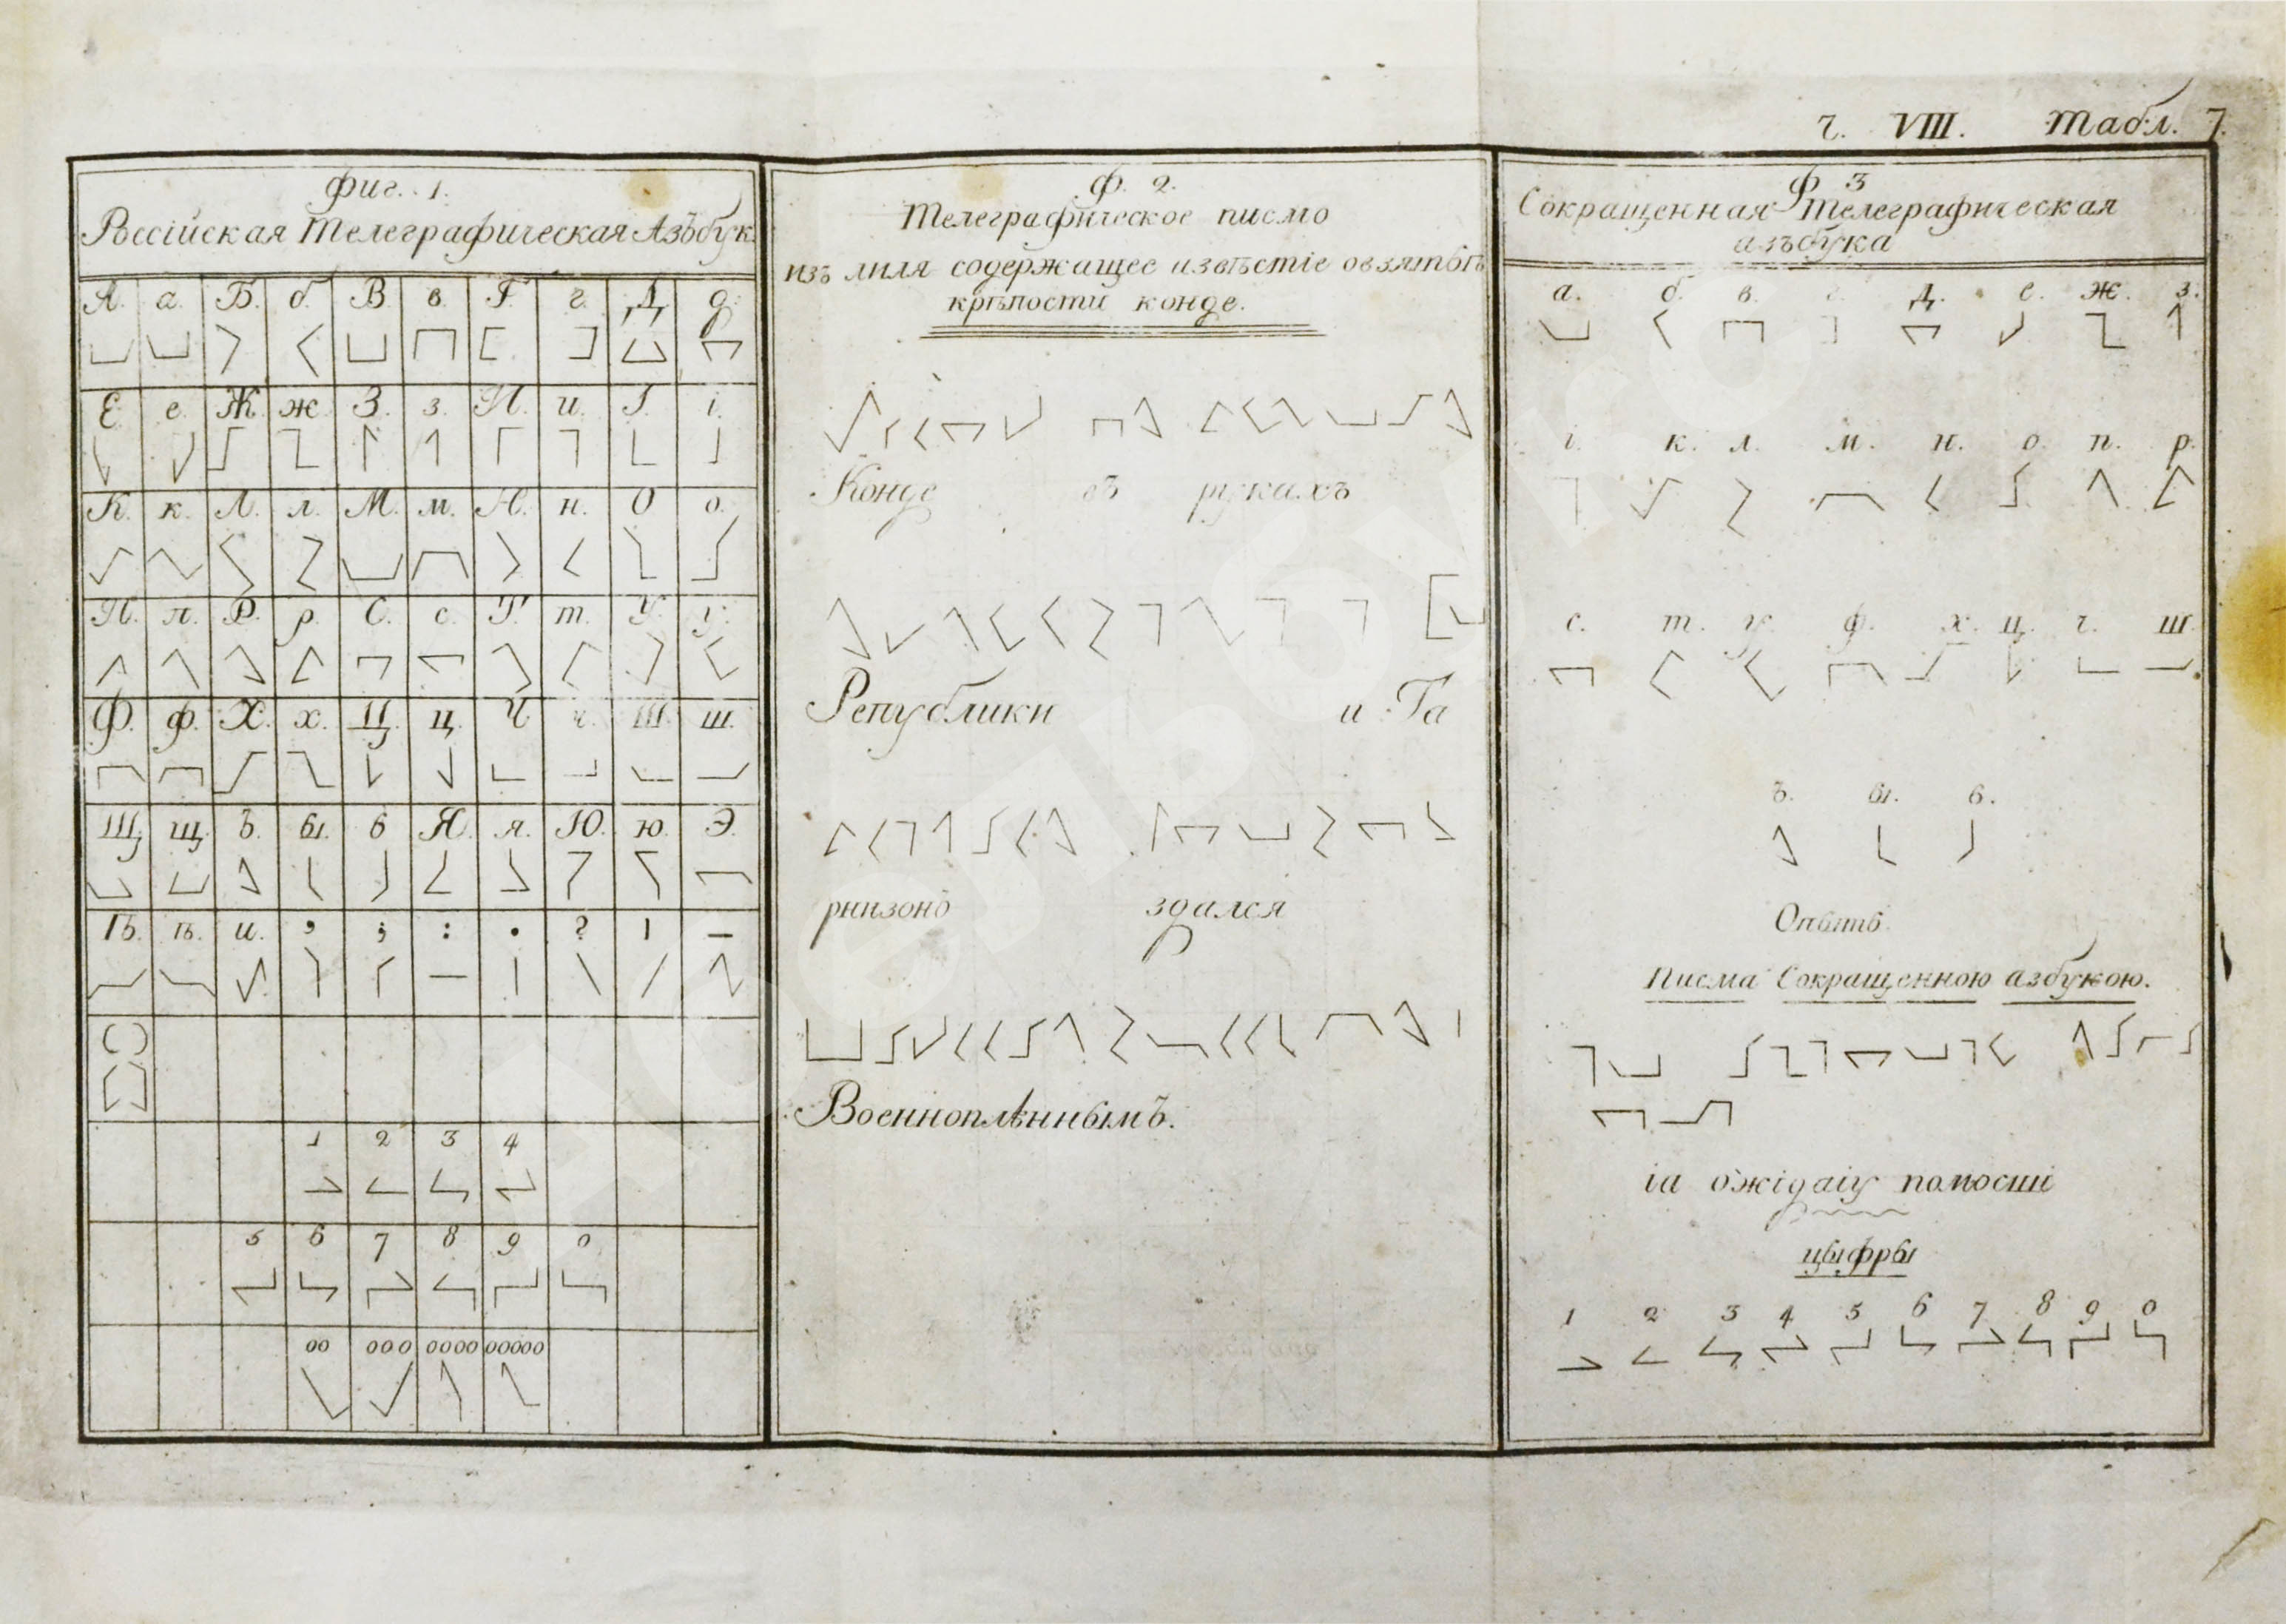 Ч. VIII. Табл. 7.
Фиг. 1.
Россійская Телеграфическая Азъбук.
А. а. Б. б. В. в. Г. г. Д. д.
Е. е. Ж. ж. З. з. И. и. І. і.
К. к. Л. л. М. м. Н. н. О о.
П. п. Р. р. С. с. Т. т. У. у.
Ф. ф. Х. х. Ц. ц. Ч ч. Ш. ш.
Щ. щ. ъ. ы. ь Я. я. Ю. ю. Э.
Ѣ. ѣ. й. , ; : . ? ! —
1 2 3 4
5 6 7 8 9 0
00 000 0000 00000
Ф. 2.
Телеграфическое писмо
изъ лиля содержащее извѣстіе овзятьѣ
крѣпости конде.
Конде въ рукахъ
Републики и Га
рнизонъ здался
Военноплѣннымъ.
Ф 3
Сокращенная Телеграфическая
азъбука
а. б. в. г. д. е. ж. з.
і. к. л. м. н. о. п. р.
с. т. у. ф. х. ц. ч. ш.
ъ. ы. ь.
Опытъ
Писма Сокращенною азбукою.
іа ожідаіу помосші
цыфры
1 2 3 4 5 6 7 8 9 0